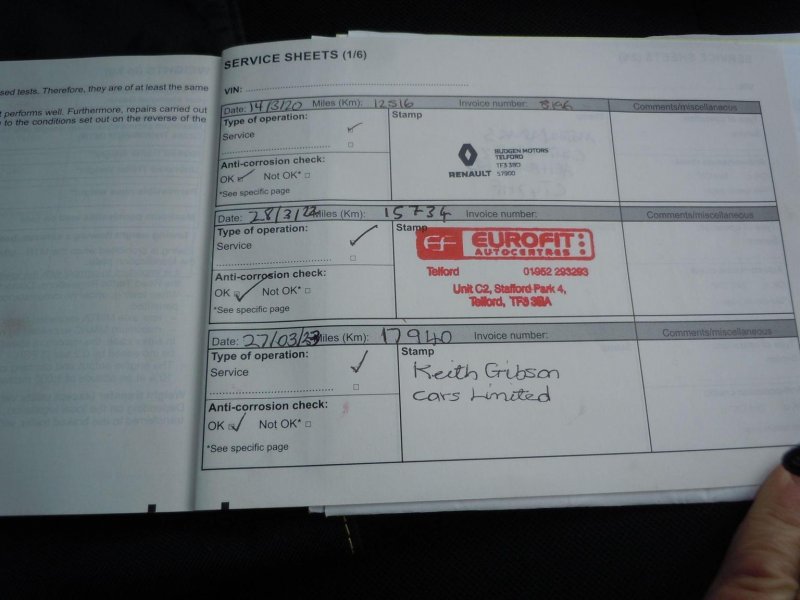 SERVICE SHEETS (1/6)
sed tests. Therefore, they are of at least the same
performs well. Furthermore, repairs carried out
to the conditions set out on the reverse of the
VIN:
Date: 14/3/20 Miles (Km): 12516 Invoice number: Comments/miscellaneous
Type of operation:
Service
Stamp
RENAULT
BUDGEN MOTORS
TELFORD
TF3 3BD
57900
Anti-corrosion check:
OK Not OK*
*See specific page
Date: 28/3/22 Miles (Km): 15734 Invoice number: Comments/miscellaneous
Type of operation:
Service
Stamp
EF EUROFIT:
AUTOCENTRES
Telford 01952 293293
Unit C2, Stafford Park 4,
Telford, TF3 3BA
Anti-corrosion check:
OK Not OK*
*See specific page
Date: 27/03/23 Miles (Km): 17940 Invoice number: Comments/miscellaneous
Type of operation:
Service
Stamp
Keith Gibson
Cars Limited
Anti-corrosion check:
OK Not OK*
*See specific page